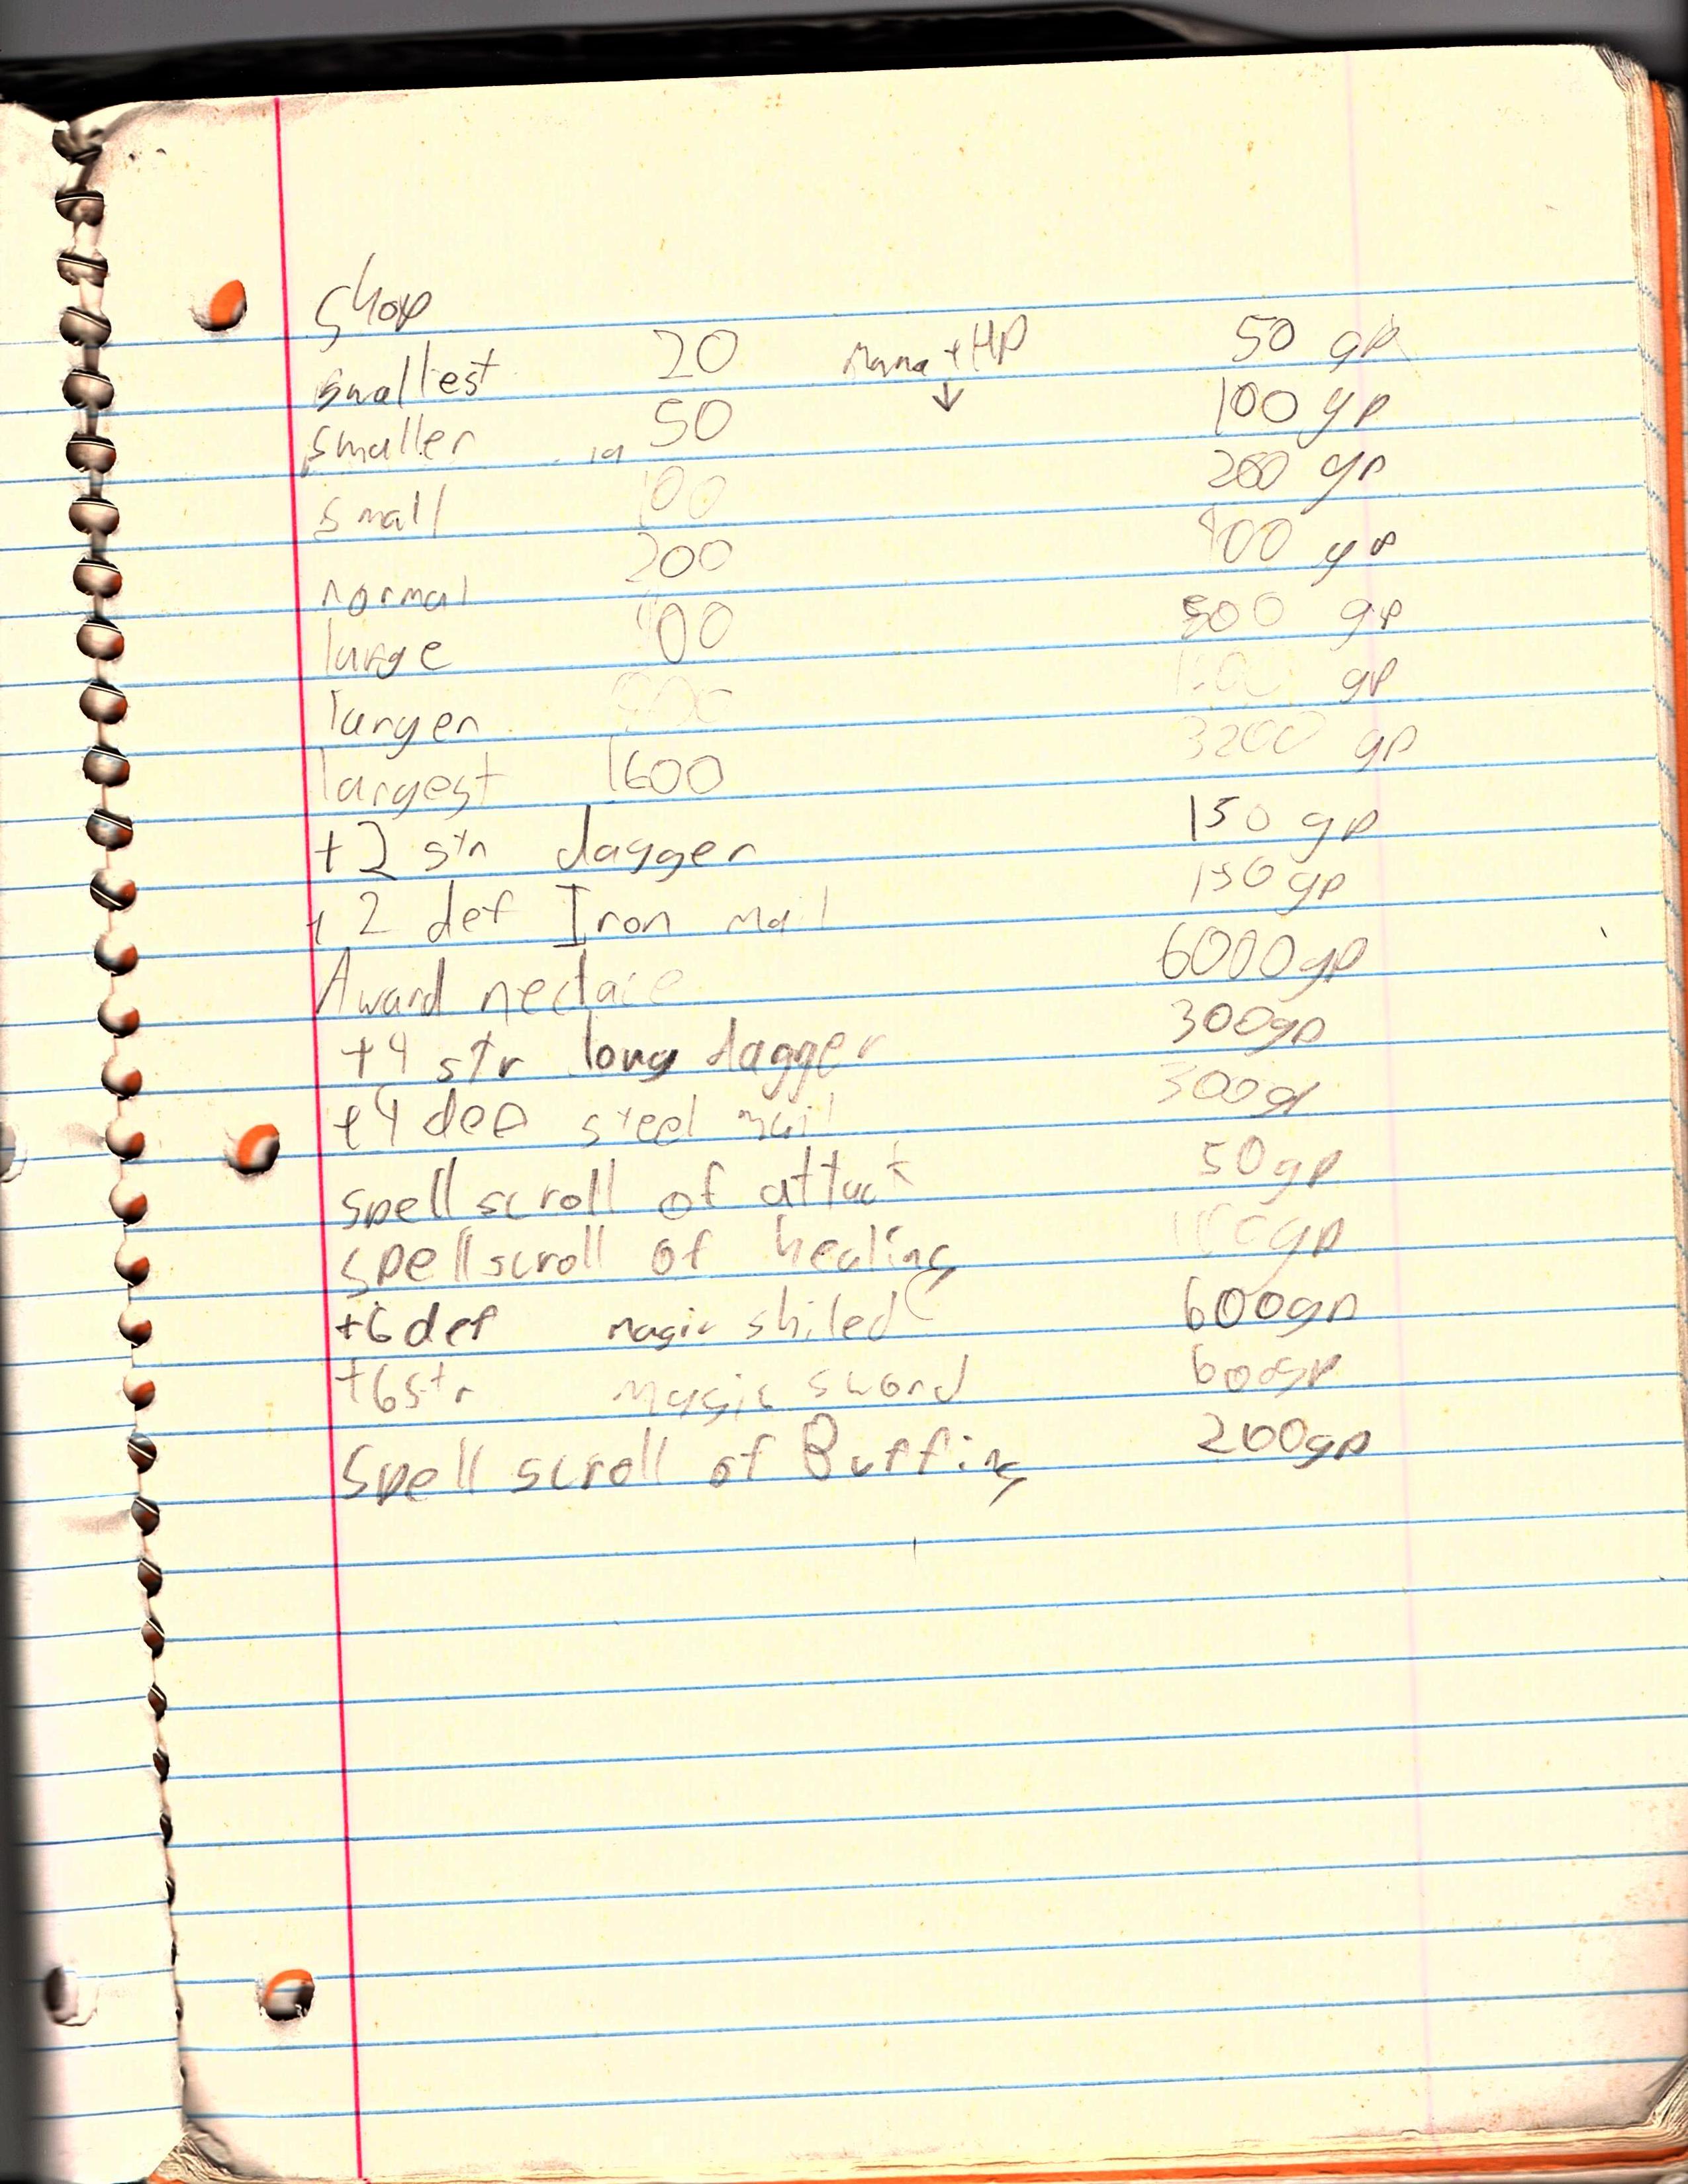 Shop
smallest 20 mana + HP 50 gp
smaller 50 ↓ 100 gp
small 100 200 gp
normal 200 400 gp
large 400 800 gp
larger 800 gp
largest 1600 3200 gp
+2 str dagger 150 gp
+2 def Iron mail 150 gp
Award necklace 6000gp
+4 str long dagger 300gp
+4 def steel mail 300g
spell scroll of attack 50gp
spell scroll of healing 100gp
+6 def magic shiled 600gp
+6 str magic sword 600gp
Spell scroll of Buffing 200gp